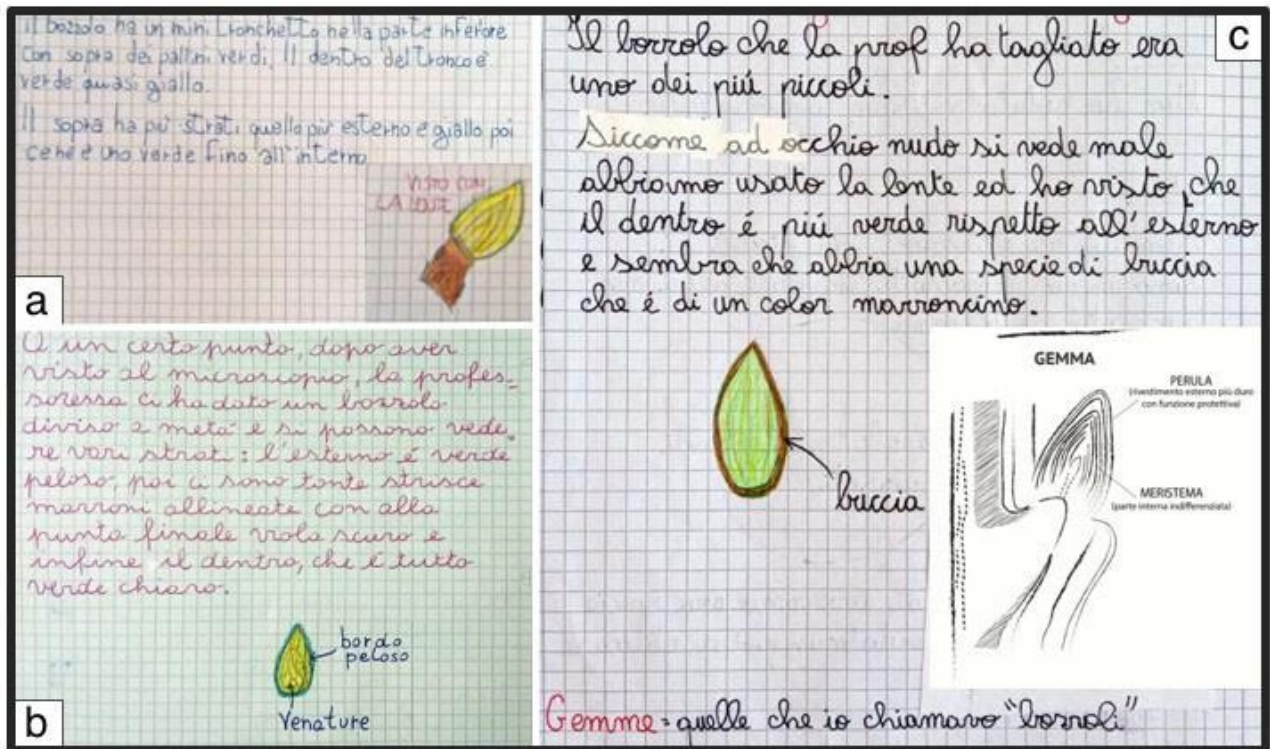 Il bozzolo ha un mini tronchetto nella parte inferiore
con sopra dei pallini verdi. Il dentro del tronco è
verde quasi giallo.
Il sopra ha più strati quello più esterno è giallo poi
ce né è uno verde fino all'interno
VISTO CON
LA LENTE
a
A un certo punto, dopo aver
visto al microscopio, la profes-
soressa ci ha dato un bozzolo
diviso a metà e si possono vede-
re vari strati: l'esterno é verde
peloso, poi ci sono tante strisce
marroni allineate con alla
punta finale viola scuro e
infine il dentro, che é tutto
verde chiaro.
bordo
peloso
Venature
b
c
Il bozzolo che la prof ha tagliato era
uno dei piú piccoli.
Siccome ad occhio nudo si vede male
abbiamo usato la lente ed ho visto che
il dentro é piú verde rispetto all'esterno
e sembra che abbia una specie di buccia
che é di un color marroncino.
buccia
GEMMA
PERULA
(rivestimento esterno più duro
con funzione protettiva)
MERISTEMA
(parte interna indifferenziata)
Gemme = quelle che io chiamavo "bozzoli"